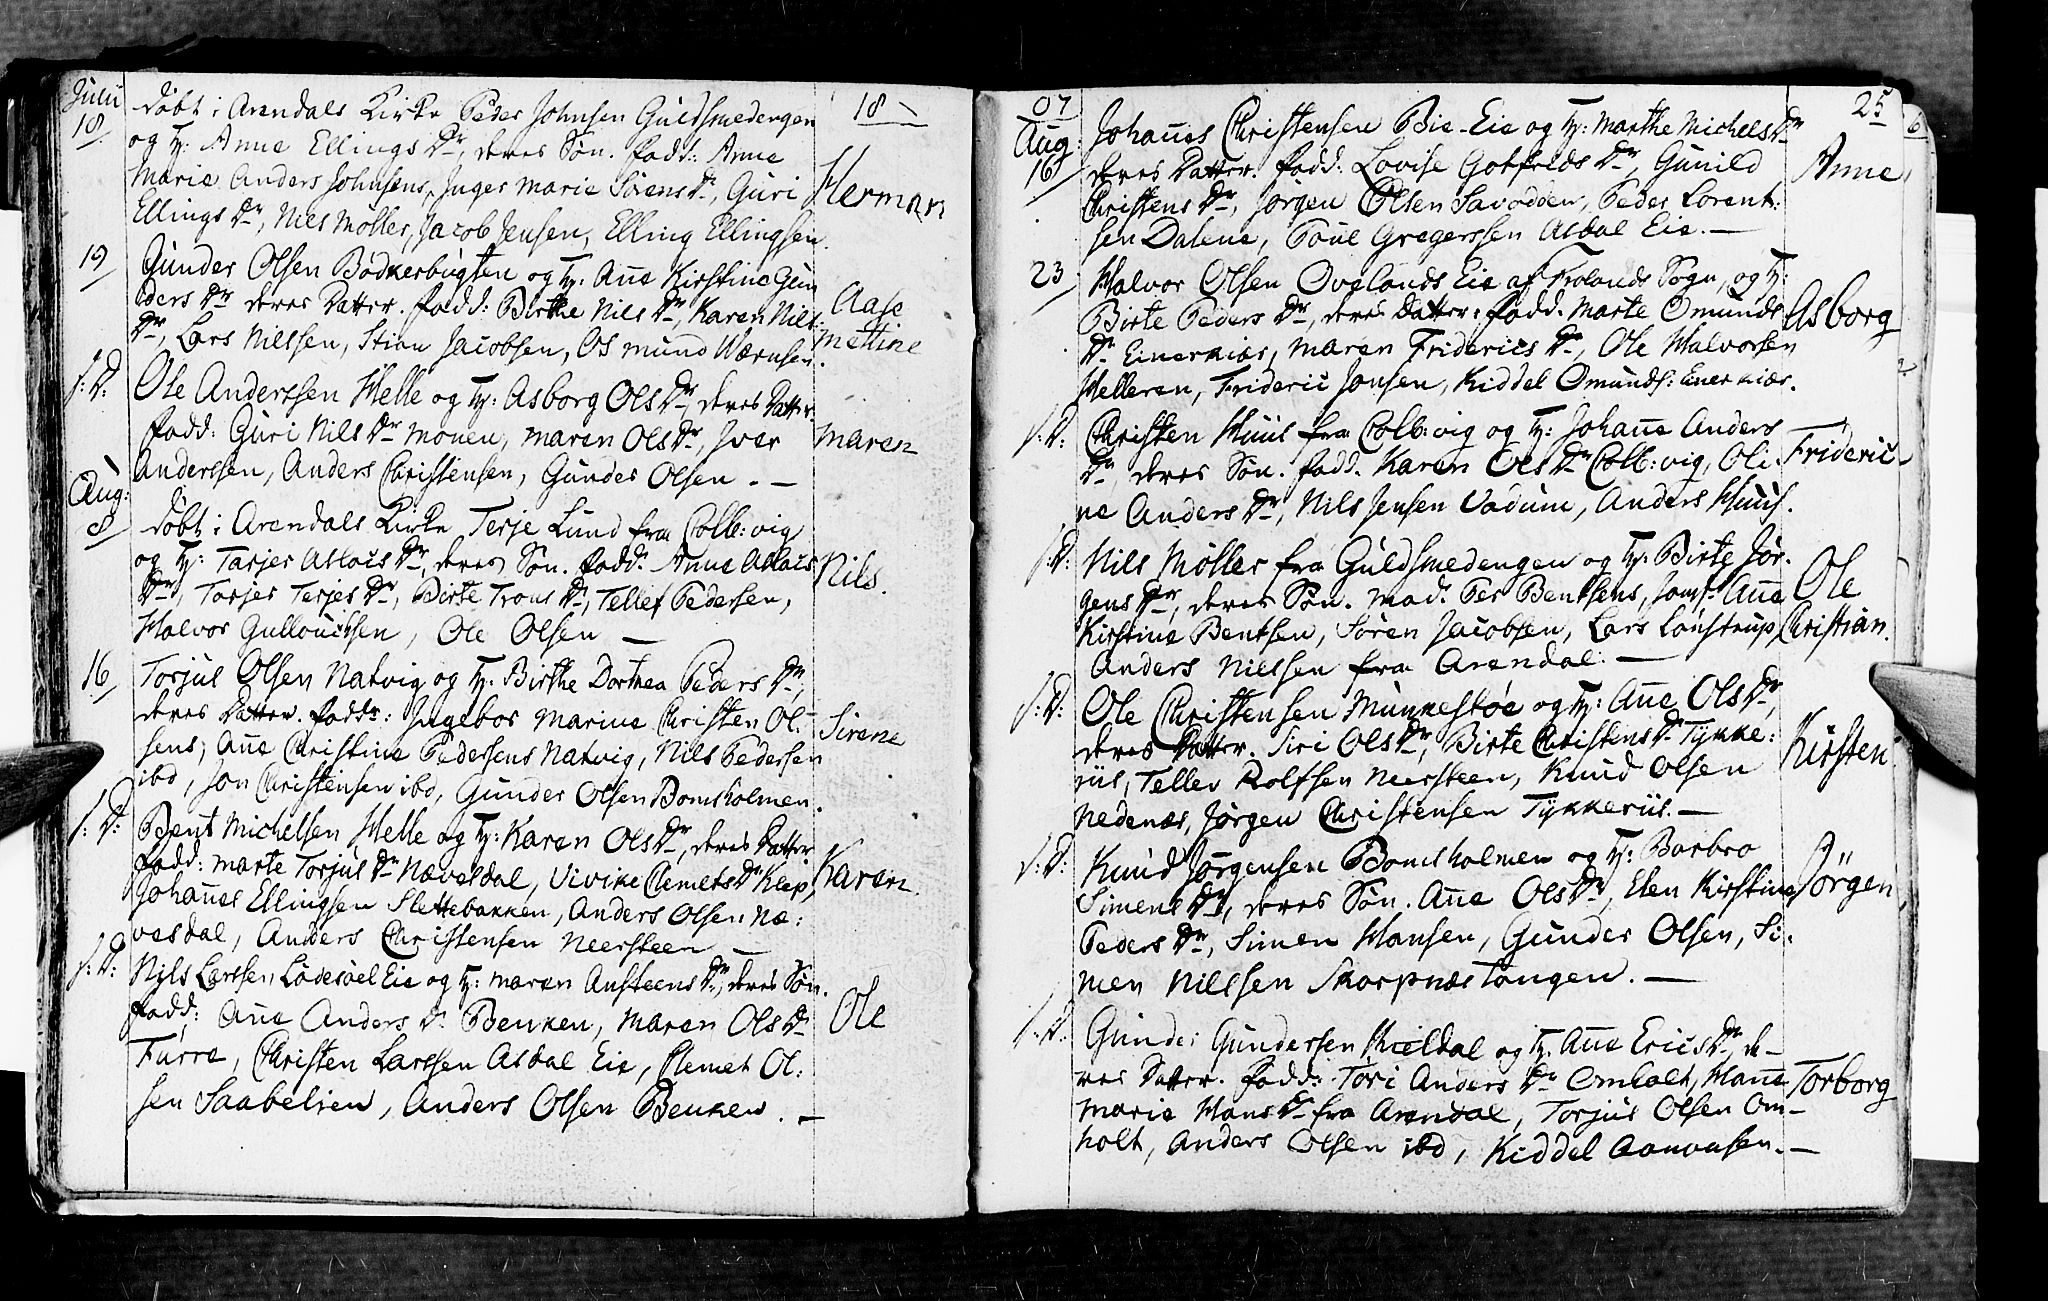 Julii
18
10
døbt i Arendals Kirke Peder Johnsen Guldsmedengen
og H: Anne Ellings Dr, deres Søn. fadd: Anne
Marie Anders Johnsens, Inger Marie Sørens Dr, Guri
Herman
Ellings Dr, Niels Møller, Jacob Jensen, Elling Ellingsen.
19
Gunder Olsen Bødkerbugten og H: Añe Kirstine Gun
ders Dr deres Datter. fadd: Birthe Nils Dr, Karen Nils
Aase
Dr, Lars Nilssen, Stian Jacobsen, Osmund Wærnsen.
Mettine
s: D:
Ole Anderssen Helle og H: Asborg Ols Dr, deres Datter
fadd: Guri Nils Dr Monen, Maren Ols Dr, Iver
Maren
Anderssen, Anders Christensen, Gunder Olsen. —
Aug:
8
døbt i Arendals Kirke Terje Lund fra Colb:vig
og H: Tarjer Dr, deres Søn. fadd. Anne
Nils.
Dr, Torjer Terjes Dr, Birte Trons Dr, Tellef Pedersen,
Halvor Ole Olsen —
16
Torjul Olsen Natvig og H: Birthe Dorthea Peders Dr,
deres Datter. faddr: Ingebor Marine Christen Ol:
Sirene
sens, Añe Christine Pedersens Natvig, Nils Pedersen
ibd, Jon Christensen ibd, Gunder Olsen Bomsholmen.
s: D:
Bent Michelsen Helle og H: Karen Ols Dr, deres Datter
fadd: Marte Torjus Dr Nævesdal, Vivike Clemets Dr Klep,
Karen.
Johañes Ellingsen Slettebakken, Anders Olsen Næ:
vesdal, Anders Christensen Neersteen —
s: D:
Nils Larssen Lødesøel Eie og H: Maren Austeens Dr, deres Søn.
fadd: Añe Anders Dr Beuken, Maren Ols Dr
Ole
Furre, Christen Larssen Asdal Eie, Clemet Ol:
sen Saabelien, Anders Olsen Beuken. —
07
25
6
Aug:
16
Johañes Christensen Bie-Eie og H: Marthe Michels Dr
deres Datter. fadd: Lovise Gotfrids Dr, Gunild
Anne
Christens Dr, Jørgen Olsen Savodden, Peder Lorent:
sen Dalene, Poul Gregerssen Asdal Eie. —
23
Halvor Olsen Ovelands Eie af Frolands Sogn, og H:
Birte Peders Dr, deres Datter. fadd. Marte Omunds
Asborg
Dr Einerkiær, Maren Friderics Dr, Ole Halvorsen
Helleren, Frideric Jonsen, Kiddel Omunds: Einerkiær.
s: D:
Christen Huus fra Colb:vig og H: Johañe Anders
Dr, deres Søn. fadd. Karen Ols Dr Colb:vig, Oli
Frideric
ne Anders Dr, Nils Jensen Vadum, Anders Huus.
s: D:
Nils Møller fra Guldsmedengen og H: Birte Jør:
gens Dr, deres Søn. Mad. Per Bentsens, Jomf: Añe
Ole
Kirstine Bentsen, Søren Jacobsen, Lars Lønstrup,
Christian.
Anders Nilssen fra Arendal. —
s: D:
Ole Christensen Munkestøe og H: Añe Ols Dr,
deres Datter. Siri Ols Dr, Birte Christens Dr Tykke:
Kirsten
riis, Tellev Rolfsen Neersteen, Knud Olsen
Nedenæs, Jørgen Christensen Tykkeriis. —
s: D:
Knud Jørgensen Bomsholmen og H: Barbro
Simens Dr, deres Søn. Añe Ols Dr, Elen Kirstine
Jörgen
Peders Dr, Simen Hansen, Gunder Olsen, Si:
men Nilssen Skarpnæs Tangen. —
s: D:
Gunder Gundersen Kieldal og H. Añe Erics Dr, de-
res Datter. fadd: Tori Anders Dr Omholt, Hañe
Torborg
Marie Hans Dr fra Arendal, Torjus Olsen Om-
holt, Anders Olsen ibd, Kiddel Aanonsen. —